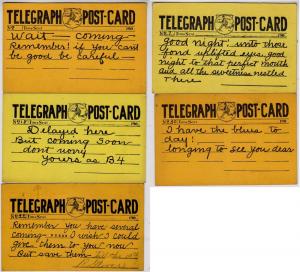 TELEGRAPH POST-CARD
Time Sent
190
Wait - coming -
Remember! if you can't
be good be careful -
TELEGRAPH POST-CARD
Time Sent
190
Good night! unto those
fond uplifted eyes, good
night to that perfect mouth
and all the sweetness nestled
there
TELEGRAPH POST-CARD
Time Sent
190
Delayed here
But coming soon -
dont worry
yours as B4
TELEGRAPH POST-CARD
Time Sent
190
I have the blues to
day!
longing to see you dear
TELEGRAPH POST-CARD
Time Sent
190
Remember you have several
coming ..... I wish I could
give them to you now
But save them